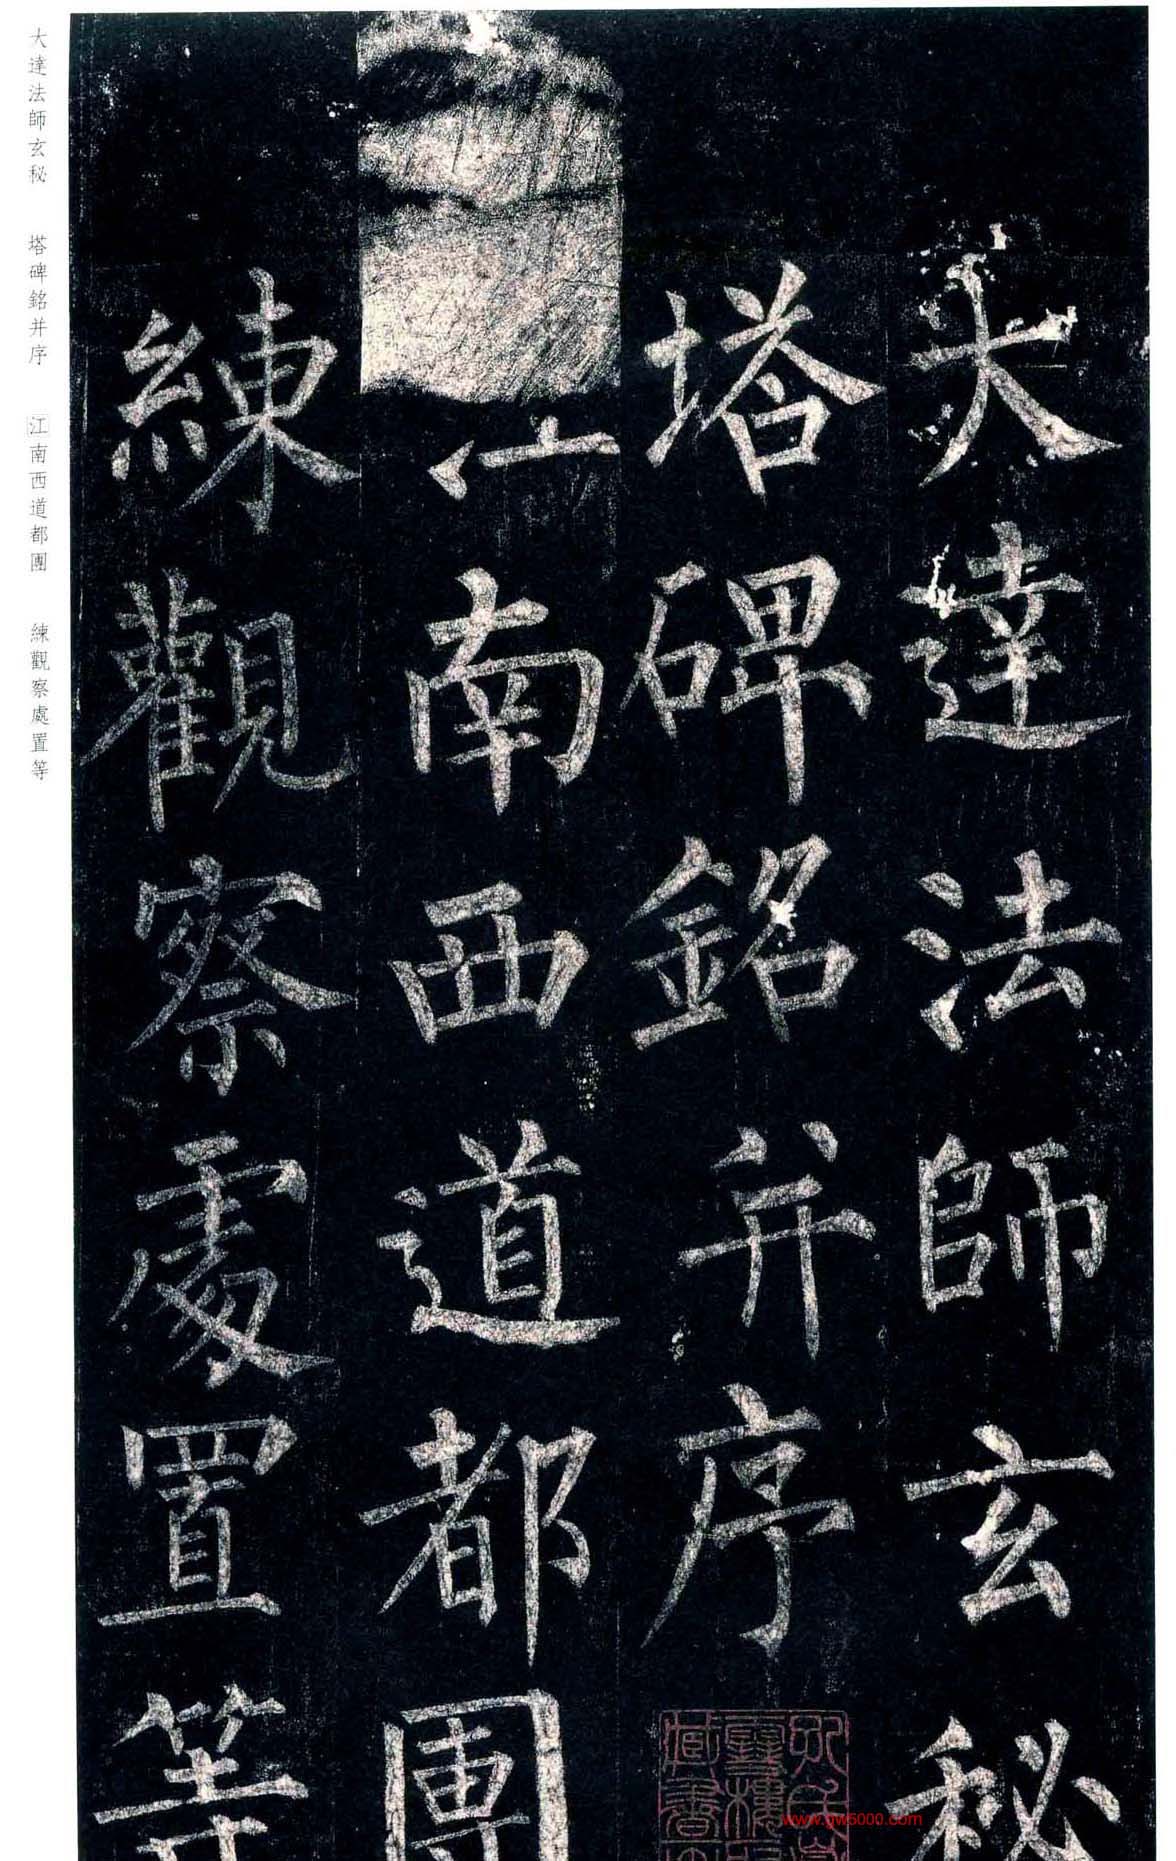 大達法師玄秘
塔碑銘并序
南西道都團
練觀察處置等
大達法師玄秘 塔碑銘并序 江南西道都團 練觀察處置等
www.gw5000.com